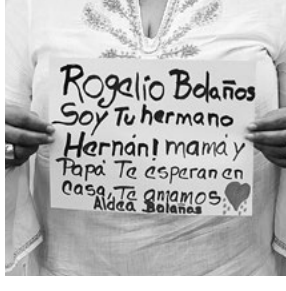 Rogelio Bolaños
Soy Tu hermano
Hernán! mamá y
Papá Te esperan en
casa, Te amamos
Aldea Bolaños